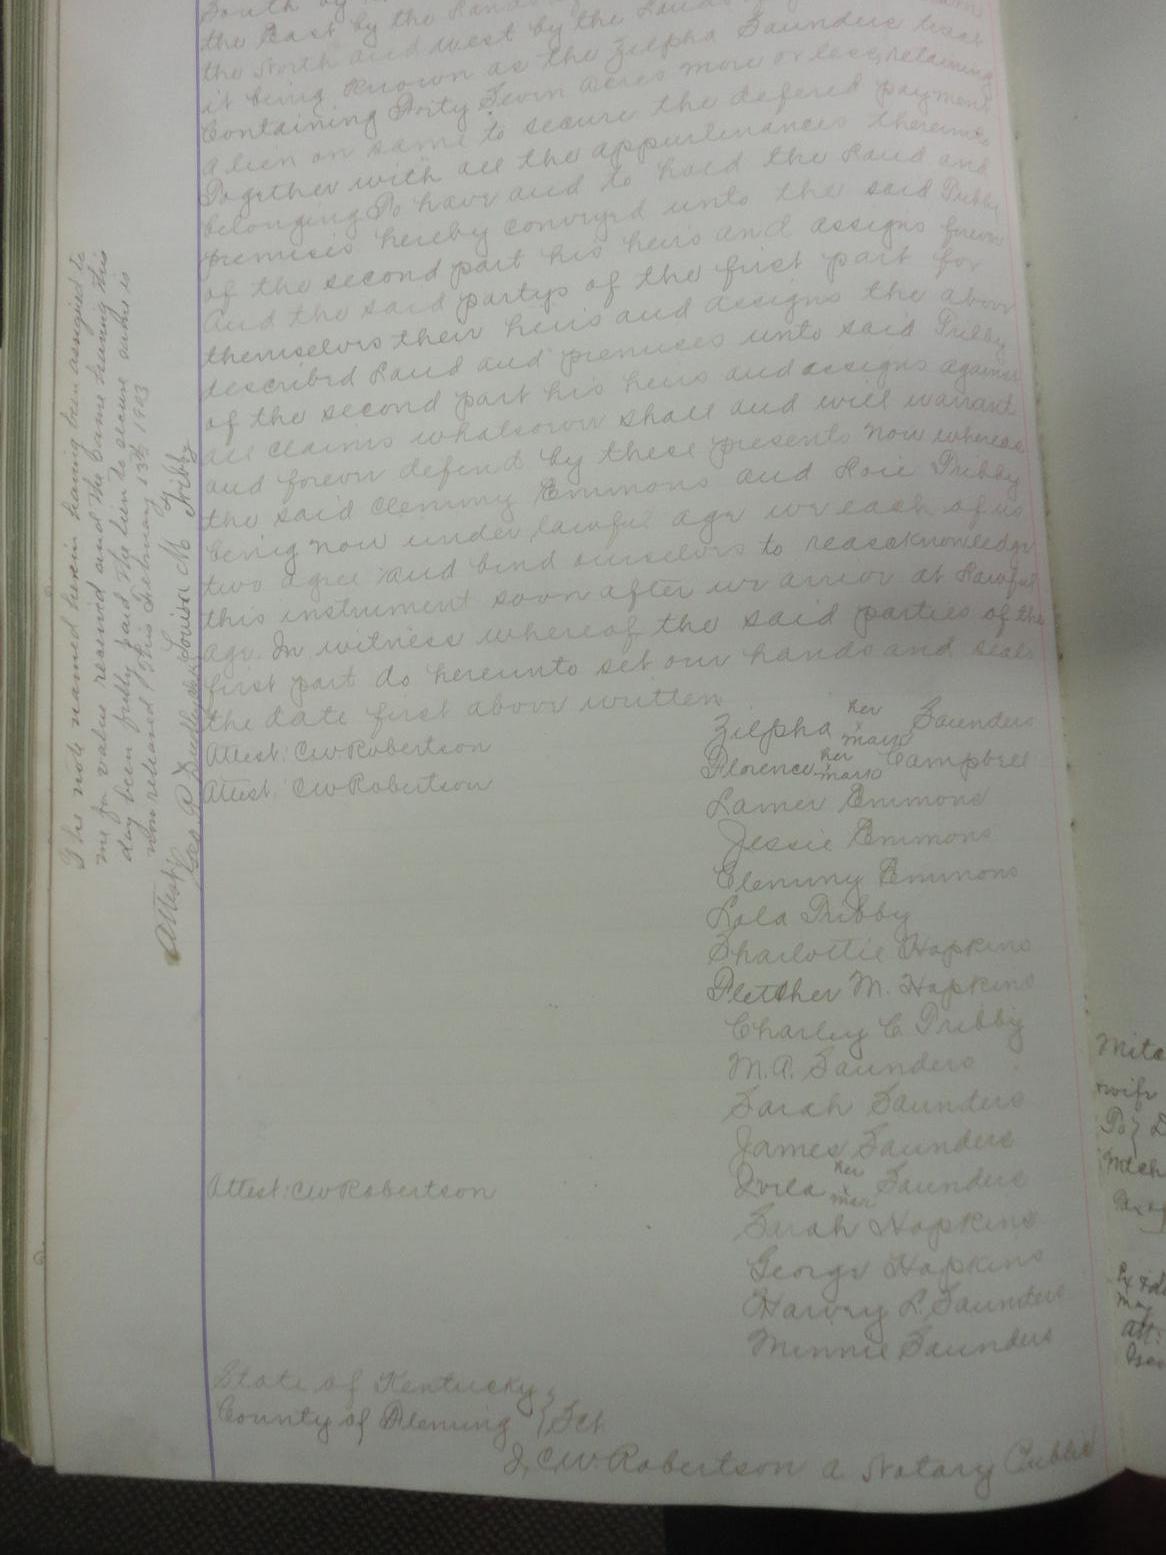 South by
the East by the Lands
the North and west by the Lands
it being Known as the Zilpha Saunders tract
Containing Forty Seven acres more or less, retaining
a lien on same to secure the defered payment
Together with all the appurtenances thereunto
belonging To have and to hold the Land and
premises hereby conveyed unto the said Tribby
of the second part his heirs and assigns forever
And the said partys of the first part for
themselves their heirs and assigns the above
described Land and premises unto said Tribby
of the second part his heirs and assigns against
all claims whatsoever shall and will warrant
and forever defend by these presents now whereas
the said Clemmy Emmons and Tribby
being now under lawful age we each of us
two agree and bind ourselves to reacknowledge
this instrument soon after we arrive at Lawful
age. In witness whereof the said parties of the
first part do hereunto set our hands and seals
the date first above written
Zilpha her x mark Saunders
Attest: CW Robertson
Florence her x mark Campbell
Attest: CW Robertson
Lamer Emmons
Jessie Emmons
Clemmy Emmons
Lola Tribby
Charlottie Hopkins
Fletcher M. Hopkins
Charley C Tribby
M.A. Saunders
Sarah Saunders
James Saunders
Attest: CW Robertson
her x mark Saunders
Sarah Hopkins
George Hopkins
Harvey L. Saunders
Minnie Saunders
State of Kentucky
County of Fleming } Sct
I, CW Robertson a Notary Public
The note named herein having been assigned to
me for value received and the same having this
day been fully paid The lien to secure same is
now released this February 13th 1903
Louisa M Tribby
Attest:
wife